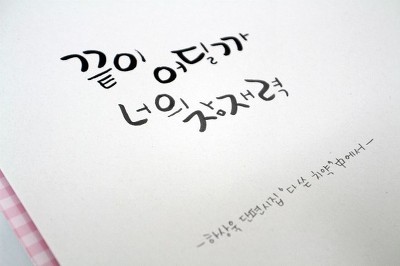 끝이 어딜까
너의 잠재력
-하상욱 단편시집 "다 쓴 치약" 中에서-